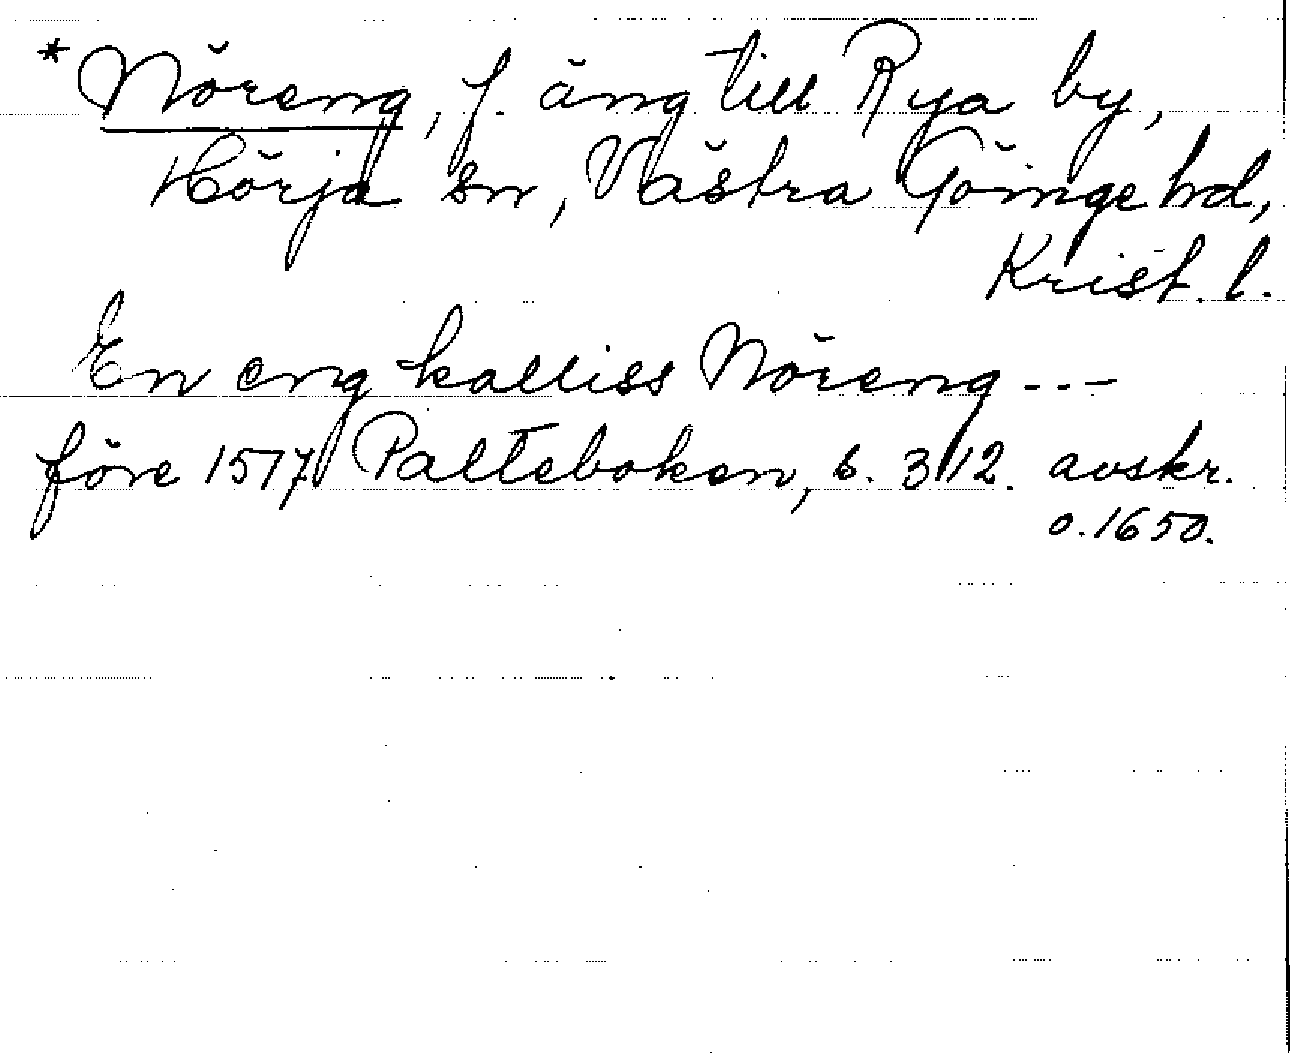 *Nöreng, f. äng till Rya by,
Hörja sn, Västra Göinge hd,
Krist. l.
En eng kalliss Nöreng ---
före 1517 Palteboken, s. 312. avskr.
o. 1650.